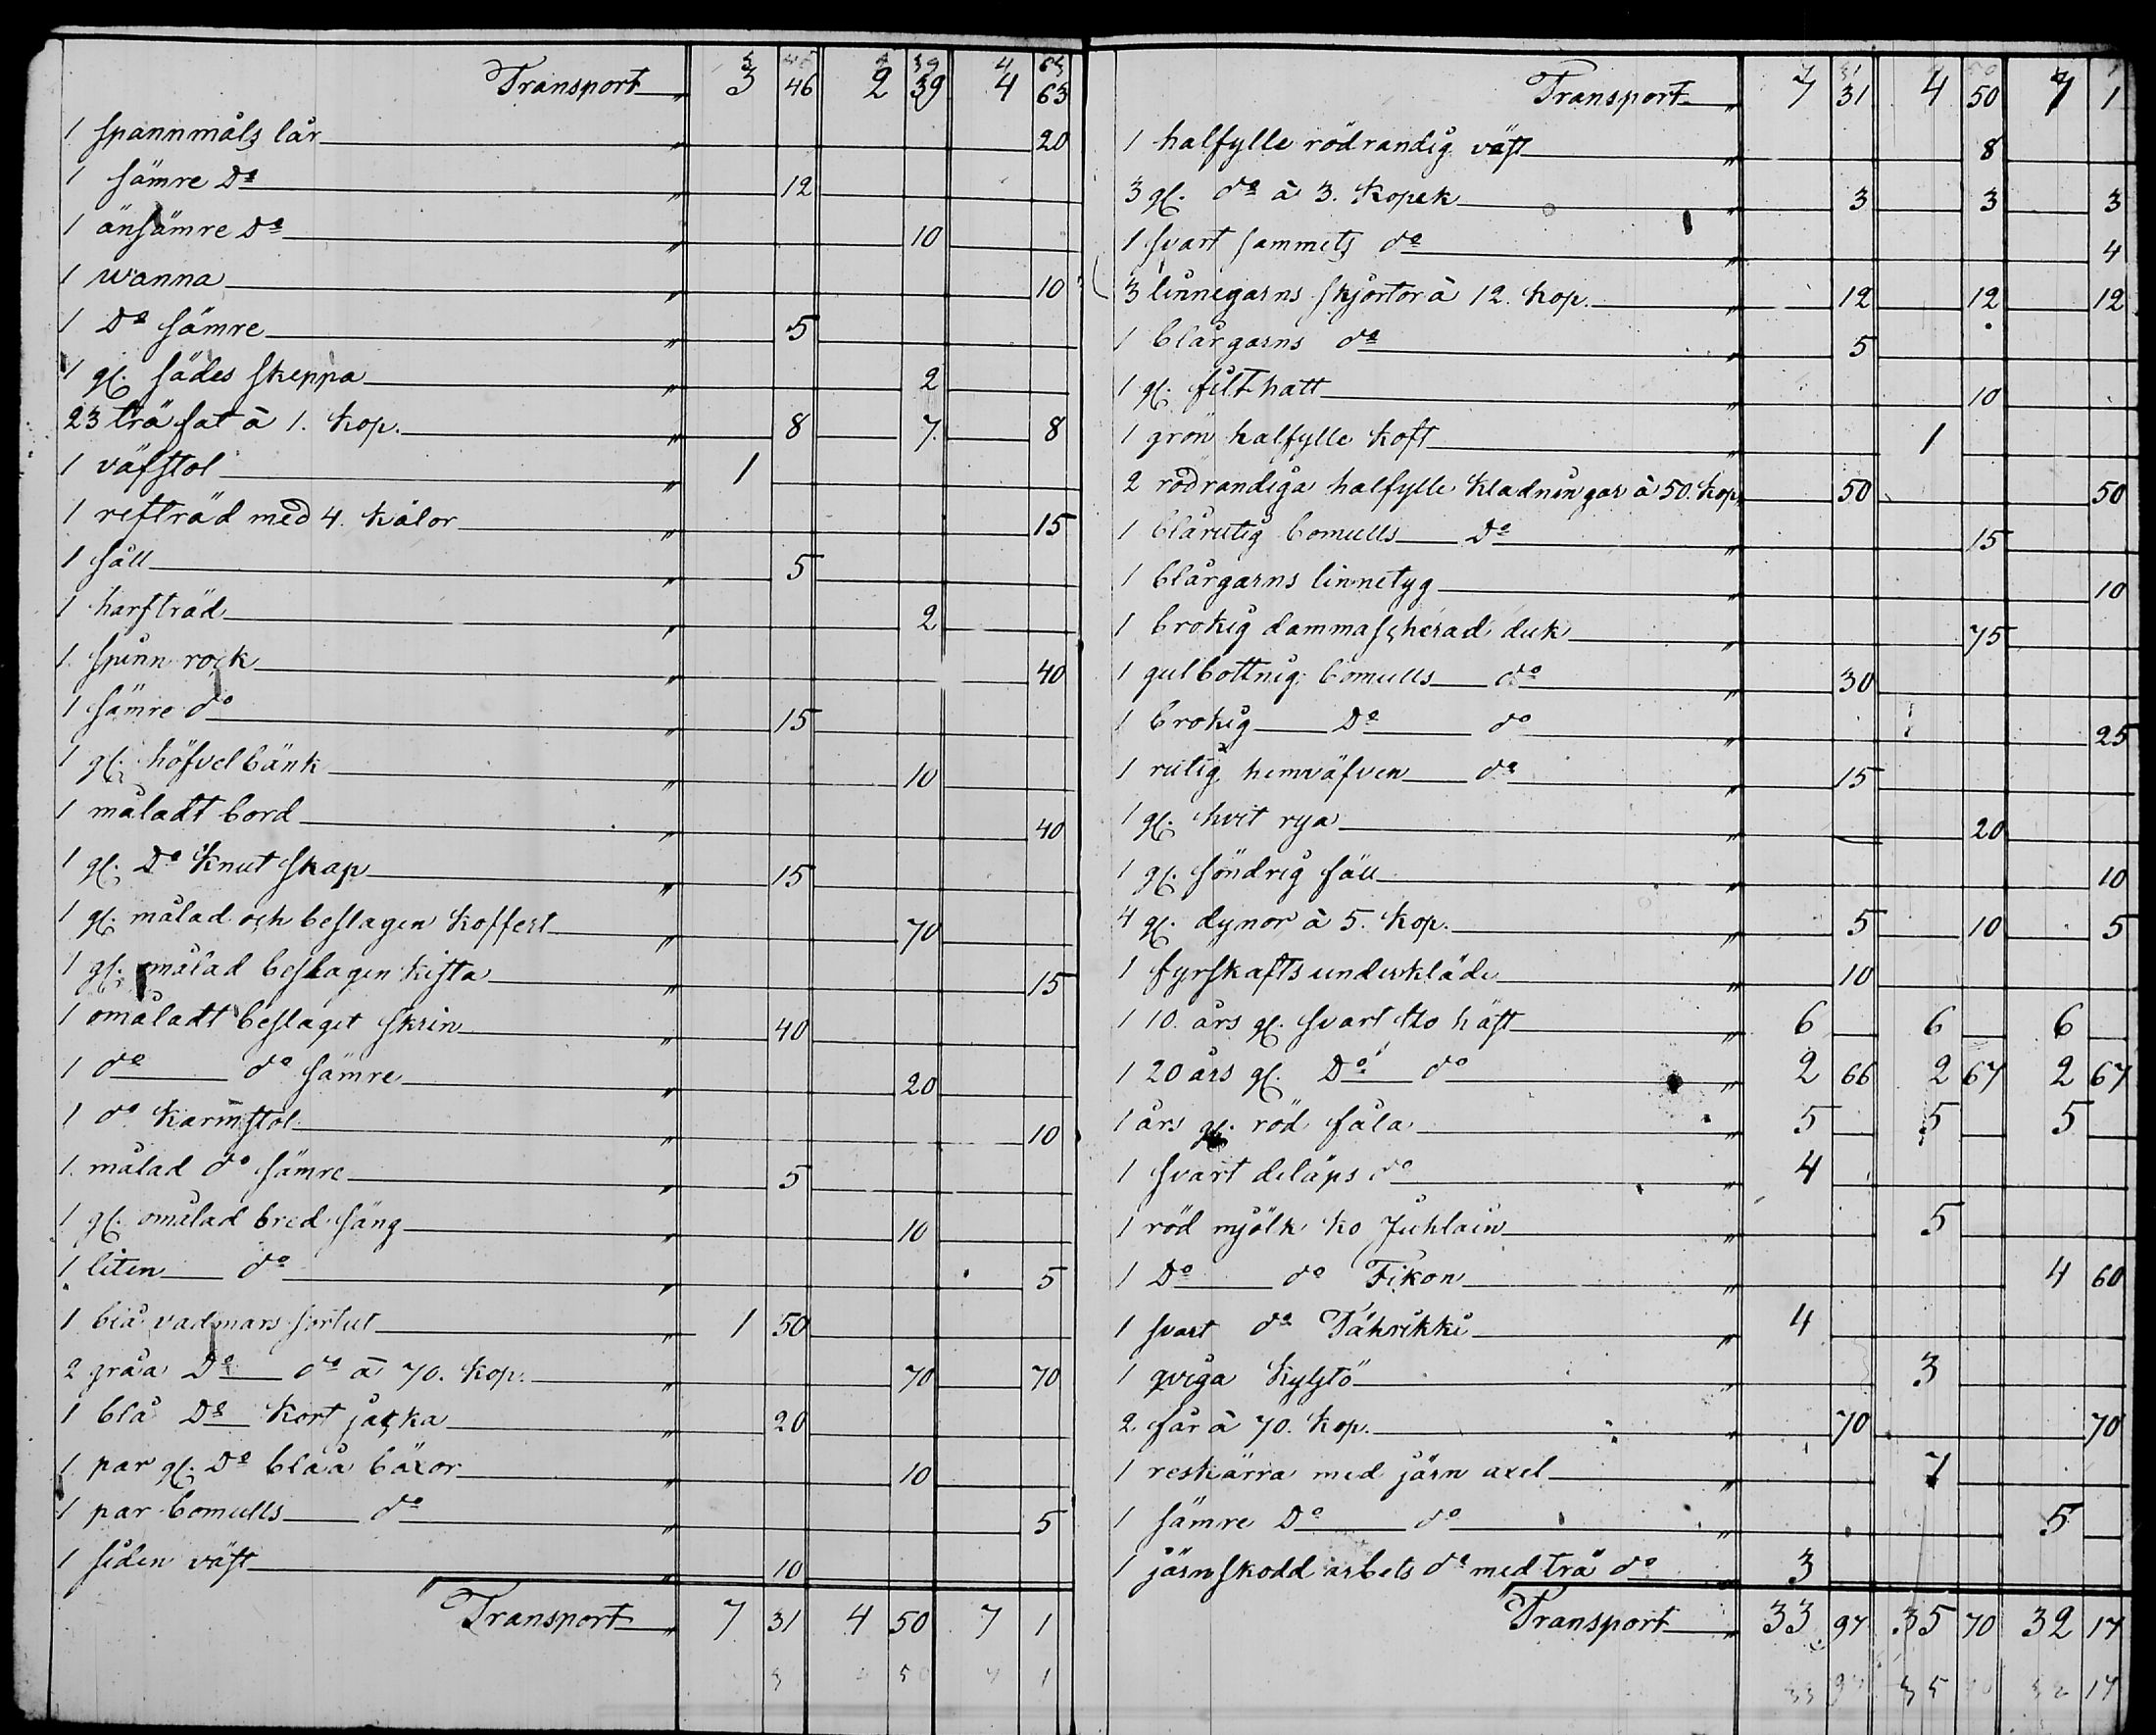 Transport 3 46 2 39 4 63
1 spannmåls lår 20
1 sämre Do 12
1 änsämre Do 10
1 wanna 10
1 Do sämre 5
1 gl. sädes skeppa 2
23 trä fat à 1. Kop. 8 7 8
1 väfstol 1
1 refträd med 4. Kälor 15
1 såll 5
1 harfträd 2
1 spinn rock 40
1 sämre do 15
1 gl. höfvelbänk 10
1 måladt bord 40
1 gl. Do Knut skap 15
1 gl. målad och beslagen Koffert 70
1 gl. målad beslagen kista 15
1 omåladt beslaget skrin 40
1 do do sämre 20
1 do Karmstol 10
1 målad do sämre 5
1 gl. omålad bred säng 10
1 liten do 5
1 blå vadmars sortut 1 50
2 gråa Do do à 70. Kop. 70 70
1 blå Do Kort jacka 20
1 par gl. Do blåa bäxor 10
1 par bomulls do 5
1 siden väst 10
Transport 7 31 4 50 7 1
Transport 7 31 4 50 7 1
1 halfylle rödrandig väst 8
3 gl. do à 3. Kopek 3 3 3
1 svart sammets do 4
3 linnegarns skjortor à 12. Kop. 12 12 12
1 blårgarns do 5
1 gl. filt hatt 10
1 grön halfylle Koft 1
2 rödrandiga halfylle Kladningar à 50. Kop. 50 50
1 blårutig bomulls Do 15
1 blårgarns linnetyg 10
1 brokig dammascherad duk 75
1 gulbottnig bomulls do 30
1 brokig Do do 25
1 rutig hemväfven do 15
1 gl. hvit rya 20
1 gl. söndrig fäll 10
4 gl. dynor à 5. Kop. 5 10 5
1 fyrskafts underkläde 10
1 10. års gl. svart sto häst 6 6 6
1 20 års gl. Do do 2 66 2 67 2 67
1 års gl. röd fåla 5 5 5
1 svart deläps do 4
1 röd mjölk ko Juhlain 5
1 Do do Fikon 4 60
1 svart do Tährikki 4
1 qviga Kylstö 3
2 får à 70. Kop. 70 70
1 reskärra med järn axel 7
1 sämre Do do 5
1 järnskodd arbets do med trä do 3
Transport 33 97 35 70 32 17